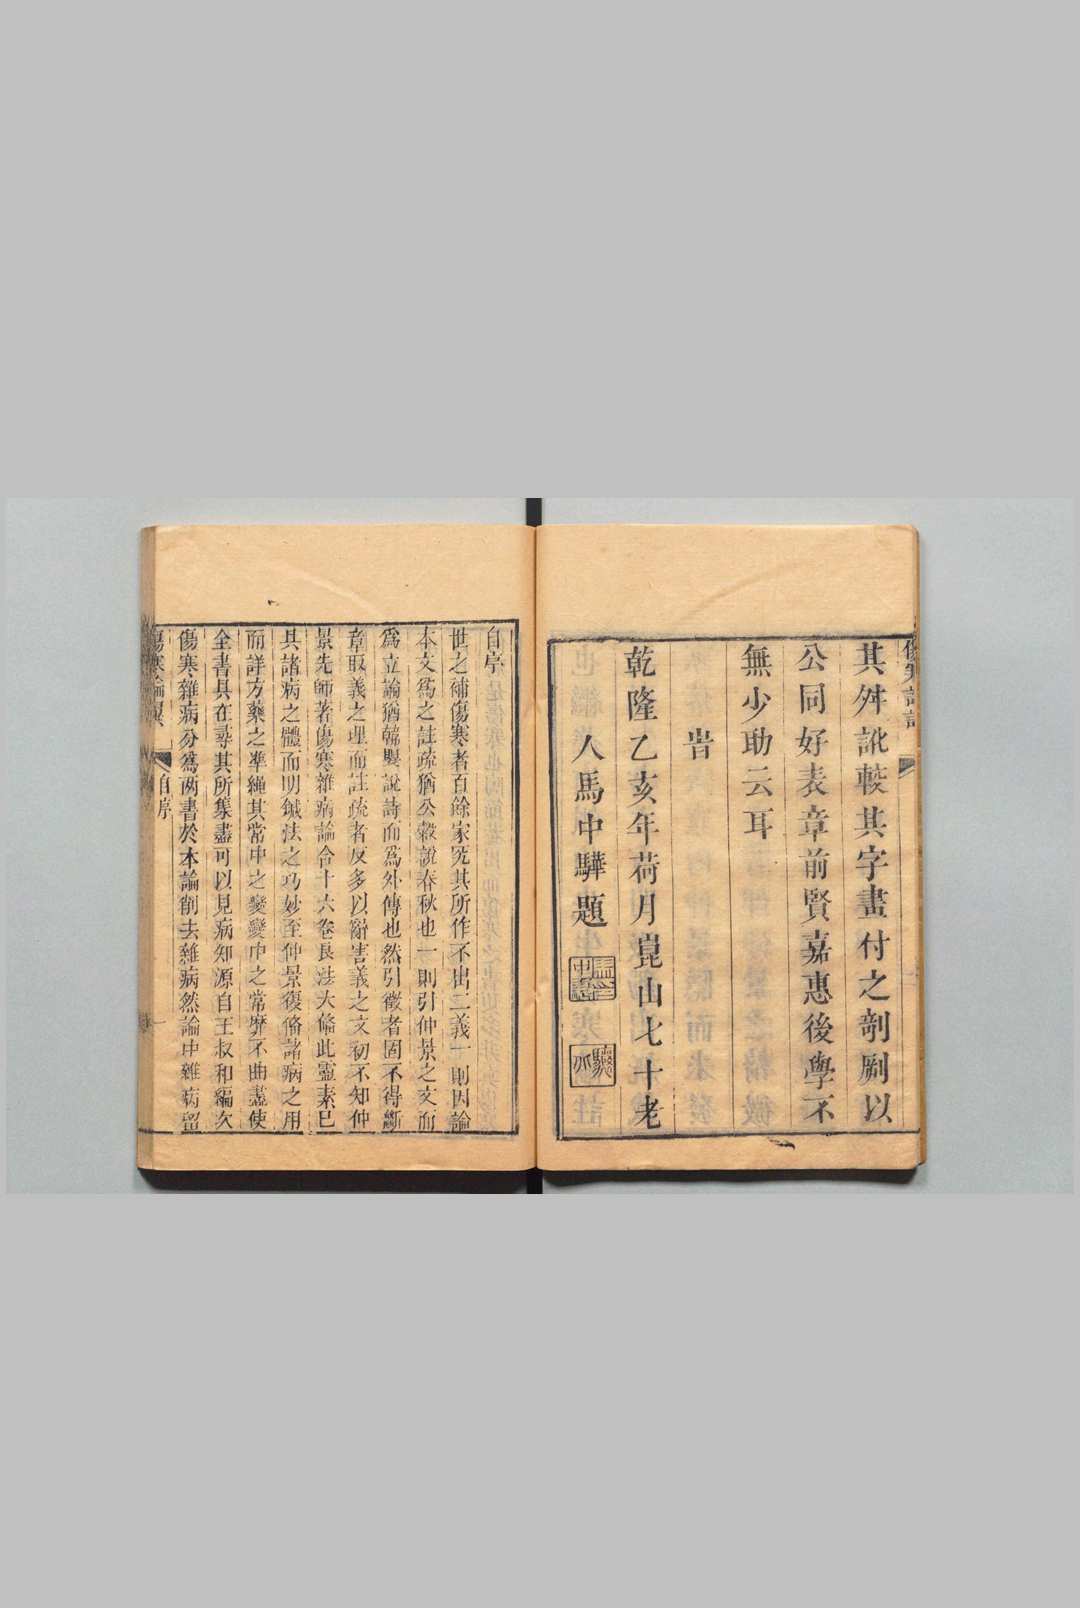 其舛訛較其字畫付之剞劂以
公同好表章前賢嘉惠後學不
無少助云耳
旹
乾隆乙亥年荷月崑山七十老
人馬中驊題
自序
世之補傷寒者百餘家究其所作不出二義一則因論
本文爲之註疏猶公穀說春秋也一則引仲景之文而
爲立論猶韓嬰說詩而爲外傳也然引徵者固不得斷
章取義之理而註疏者反多以辭害義之文初不知仲
景先師著傷寒雜病論合十六卷良法大備此靈素已
具諸病之體而明鍼法之巧妙至仲景復備諸病之用
而詳方藥之準繩其常中之變變中之常靡不曲盡使
全書具在尋其所集盡可以見病知源自王叔和編次
傷寒雜病分爲兩書於本論削去雜病然論中雜病留
自序